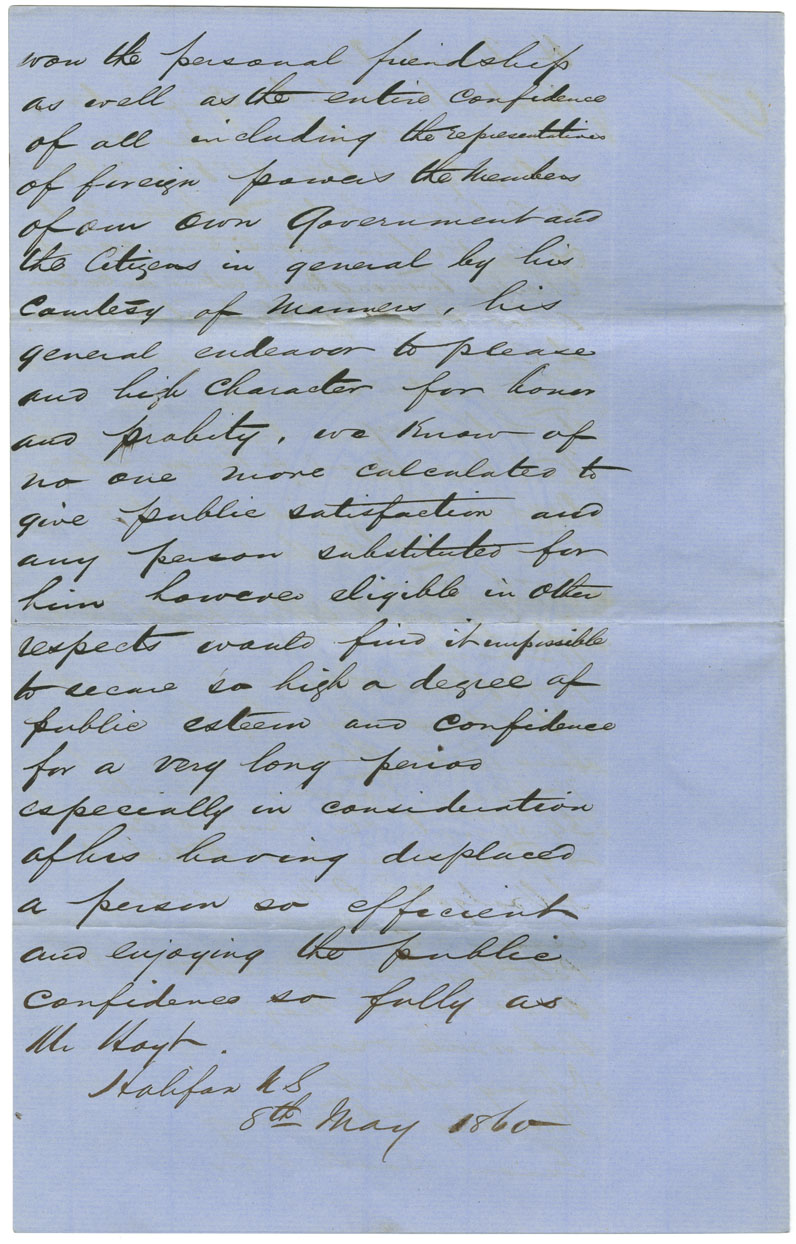 won the personal friendship
as well as the entire confidence
of all including the representatives
of foreign powers the Members
of our own Government and
the Citizens in general by his
Courtesy of Manners, his
general endeavor to please
and high Character for honor
and probity, we Know of
no one more calculated to
give public satisfaction and
any person substituted for
him however eligible in other
respects would find it impossible
to secure so high a degree of
public esteem and confidence
for a very long period
especially in consideration
of his having displaced
a person so efficient
and enjoying the public
confidence so fully as
Mr Hoyt.
Halifax N S
8th May 1860